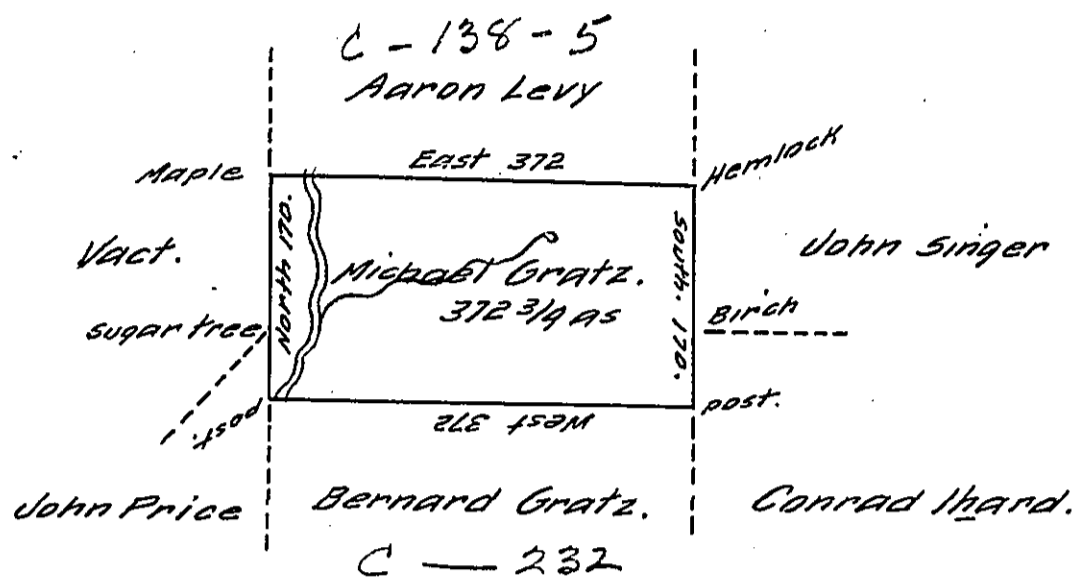 C - 138 - 5
Aaron Levy
Maple
East 372
Hemlock
Vact.
North 170.
Michael Gratz.
372 3/4 as
South. 170.
John Singer
Sugar tree
Birch
post.
West 372
post.
John Price
Bernard Gratz.
Conrad Ihard.
C — 232